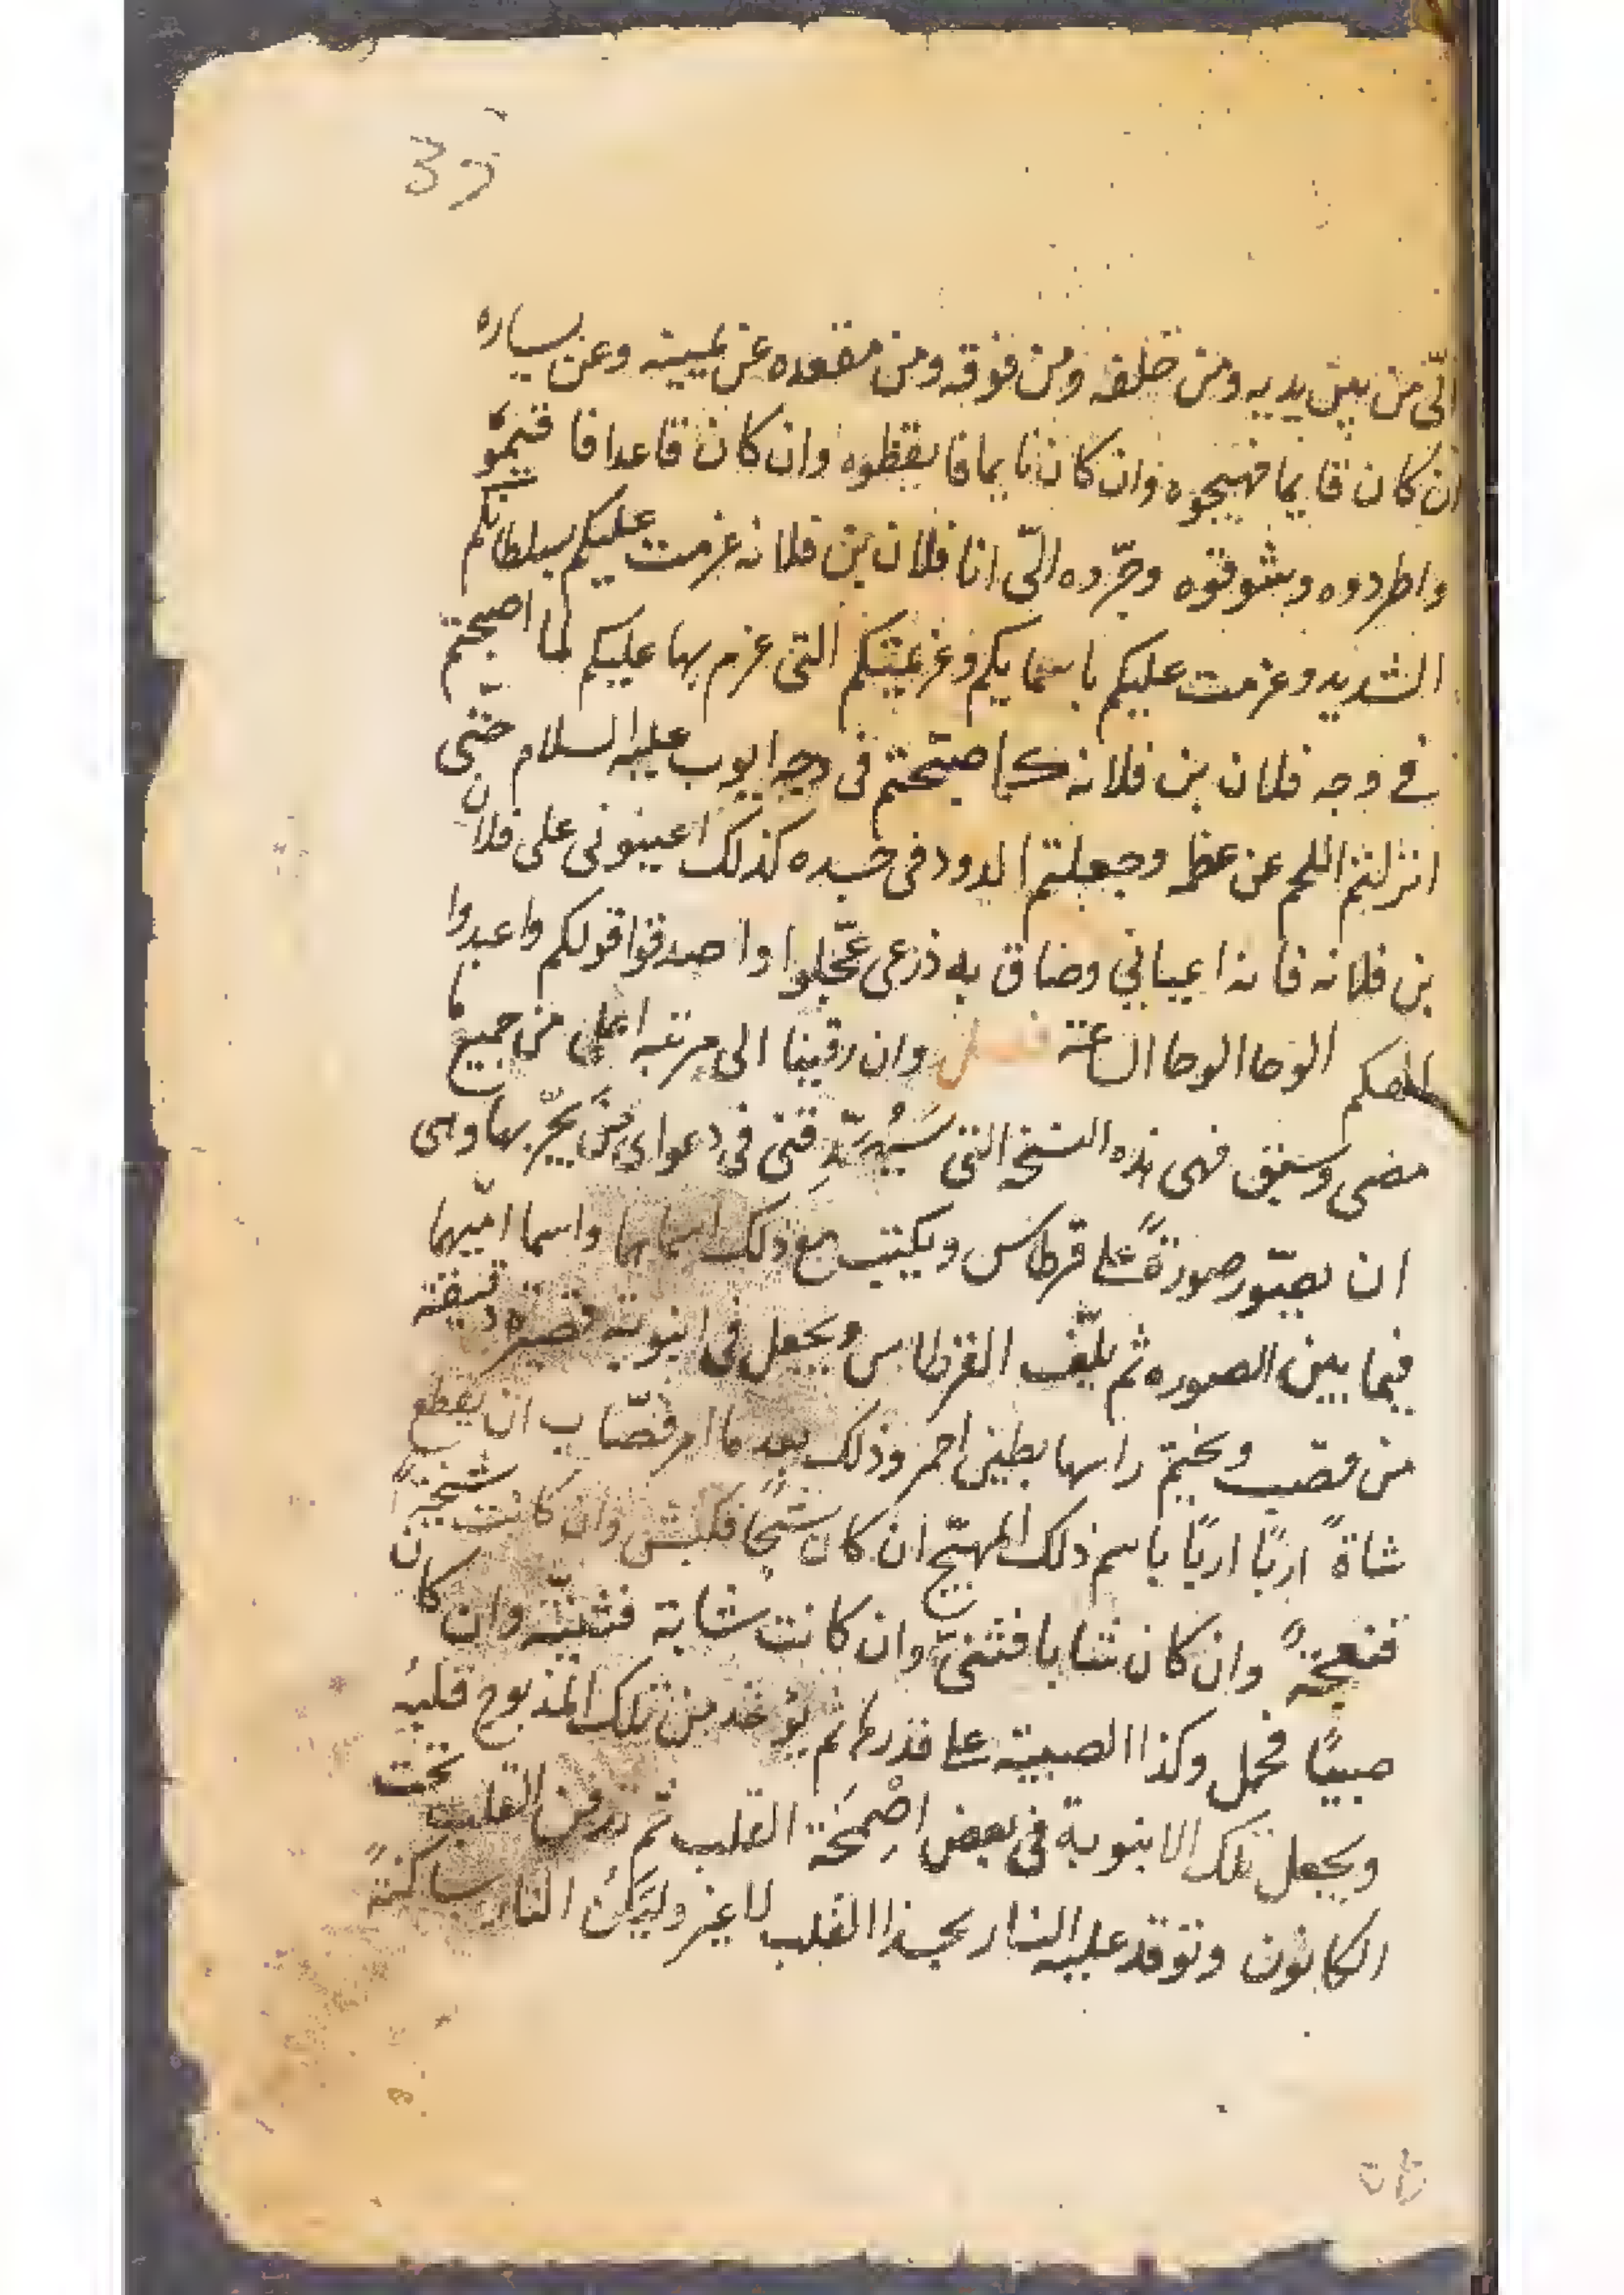 39
الّي من بين يديه ومن خلفه ومن فوقه ومن مقعده عن يمينه وعن يساره
ان كان قايما فهيجوه وان كان نايما فايقظوه وان كان قاعدا فا قيمو
واطردوه وشوقوه وجرّوه الّي انا فلان بن فلانه عزمت عليكم بسلطانكم
الشديد وعزمت عليكم باسمايكم وعزيمتكم التى عزم بها عليكم لما اصبحتم
في وجه فلان بن فلانه كما صبّحتم فى وجه ايوب عليه السلام حتّى
انزلتم اللحم عن عظمه وجعلتم الدود فى جسده كذلك اعينونى على فلان
بن فلانه فانه اعيانى وضاق به ذرعى عجّلوا واصدقوا قولكم واعبدوا
الوحا الوحا الساعة فصل وان رقينا الى مرتبه اعلى من جميع ما
مضى وسبق فهى هذه النسخه التى سَيُصَدِّقنى فى دعواى مَن يجرّبها وهى
ان يصوّر صورةً على قرطاس ويكتب مع ذلك اسماهما واسما امّيهما
فيما بين الصوره ثم يلّف القرطاس ويجعل فى انبوبة قصيرة دقيقة
من قصب ويختم راسها بطين احمر وذلك بعد ما امر قصّاب ان يقطع
شاةً اربًا اربًا باسم ذلك المهيّج ان كان شيخًا فكبش وان كانت شيخةً
فنعجةً وان كان شابا فثنىّ وان كانت شابة فثنيّة وان كان
صبيًا فحمل وكذا الصبية على قدرها ثم يؤخذ من تلك المذبوح قلبُه
ويجعل تلك الانبوبة فى بعض اصْمِخَة القلب ثم تدفن القلب تحت
الكانون وتوقد عليه النار بحذا القلب لا غير وليكُن النار ساكنةً